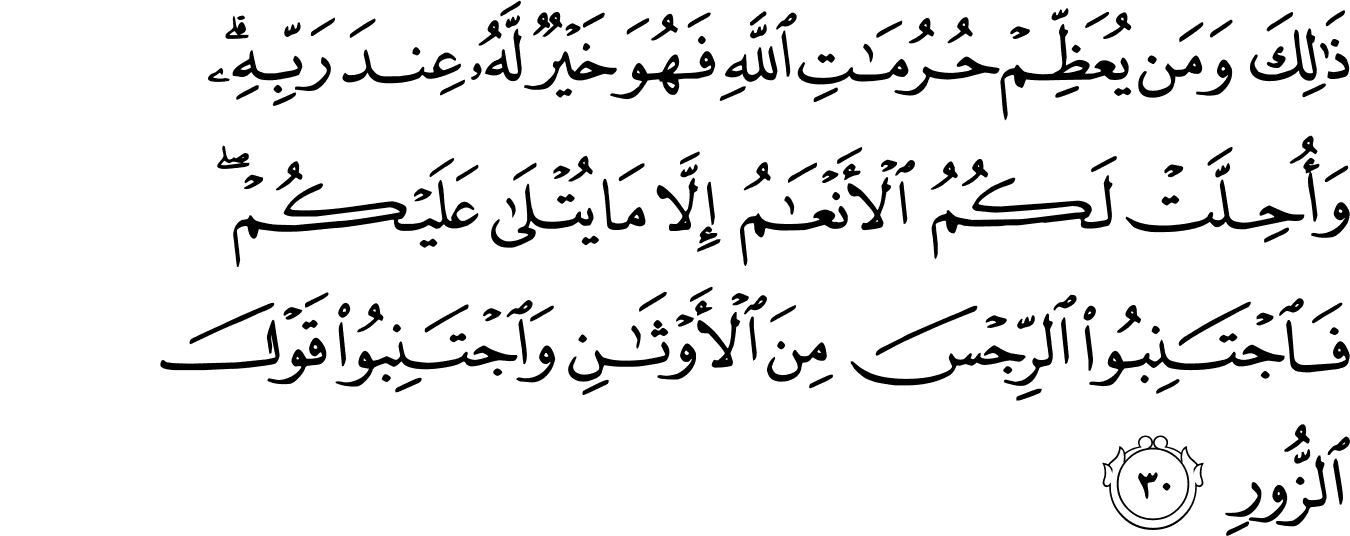 ذَٰلِكَ وَمَن يُعَظِّمۡ حُرُمَٰتِ ٱللَّهِ فَهُوَ خَيۡرٞ لَّهُۥ عِندَ رَبِّهِۦۗ
وَأُحِلَّتۡ لَكُمُ ٱلۡأَنۡعَٰمُ إِلَّا مَا يُتۡلَىٰ عَلَيۡكُمۡۖ
فَٱجۡتَنِبُواْ ٱلرِّجۡسَ مِنَ ٱلۡأَوۡثَٰنِ وَٱجۡتَنِبُواْ قَوۡلَ
ٱلزُّورِ ٣٠